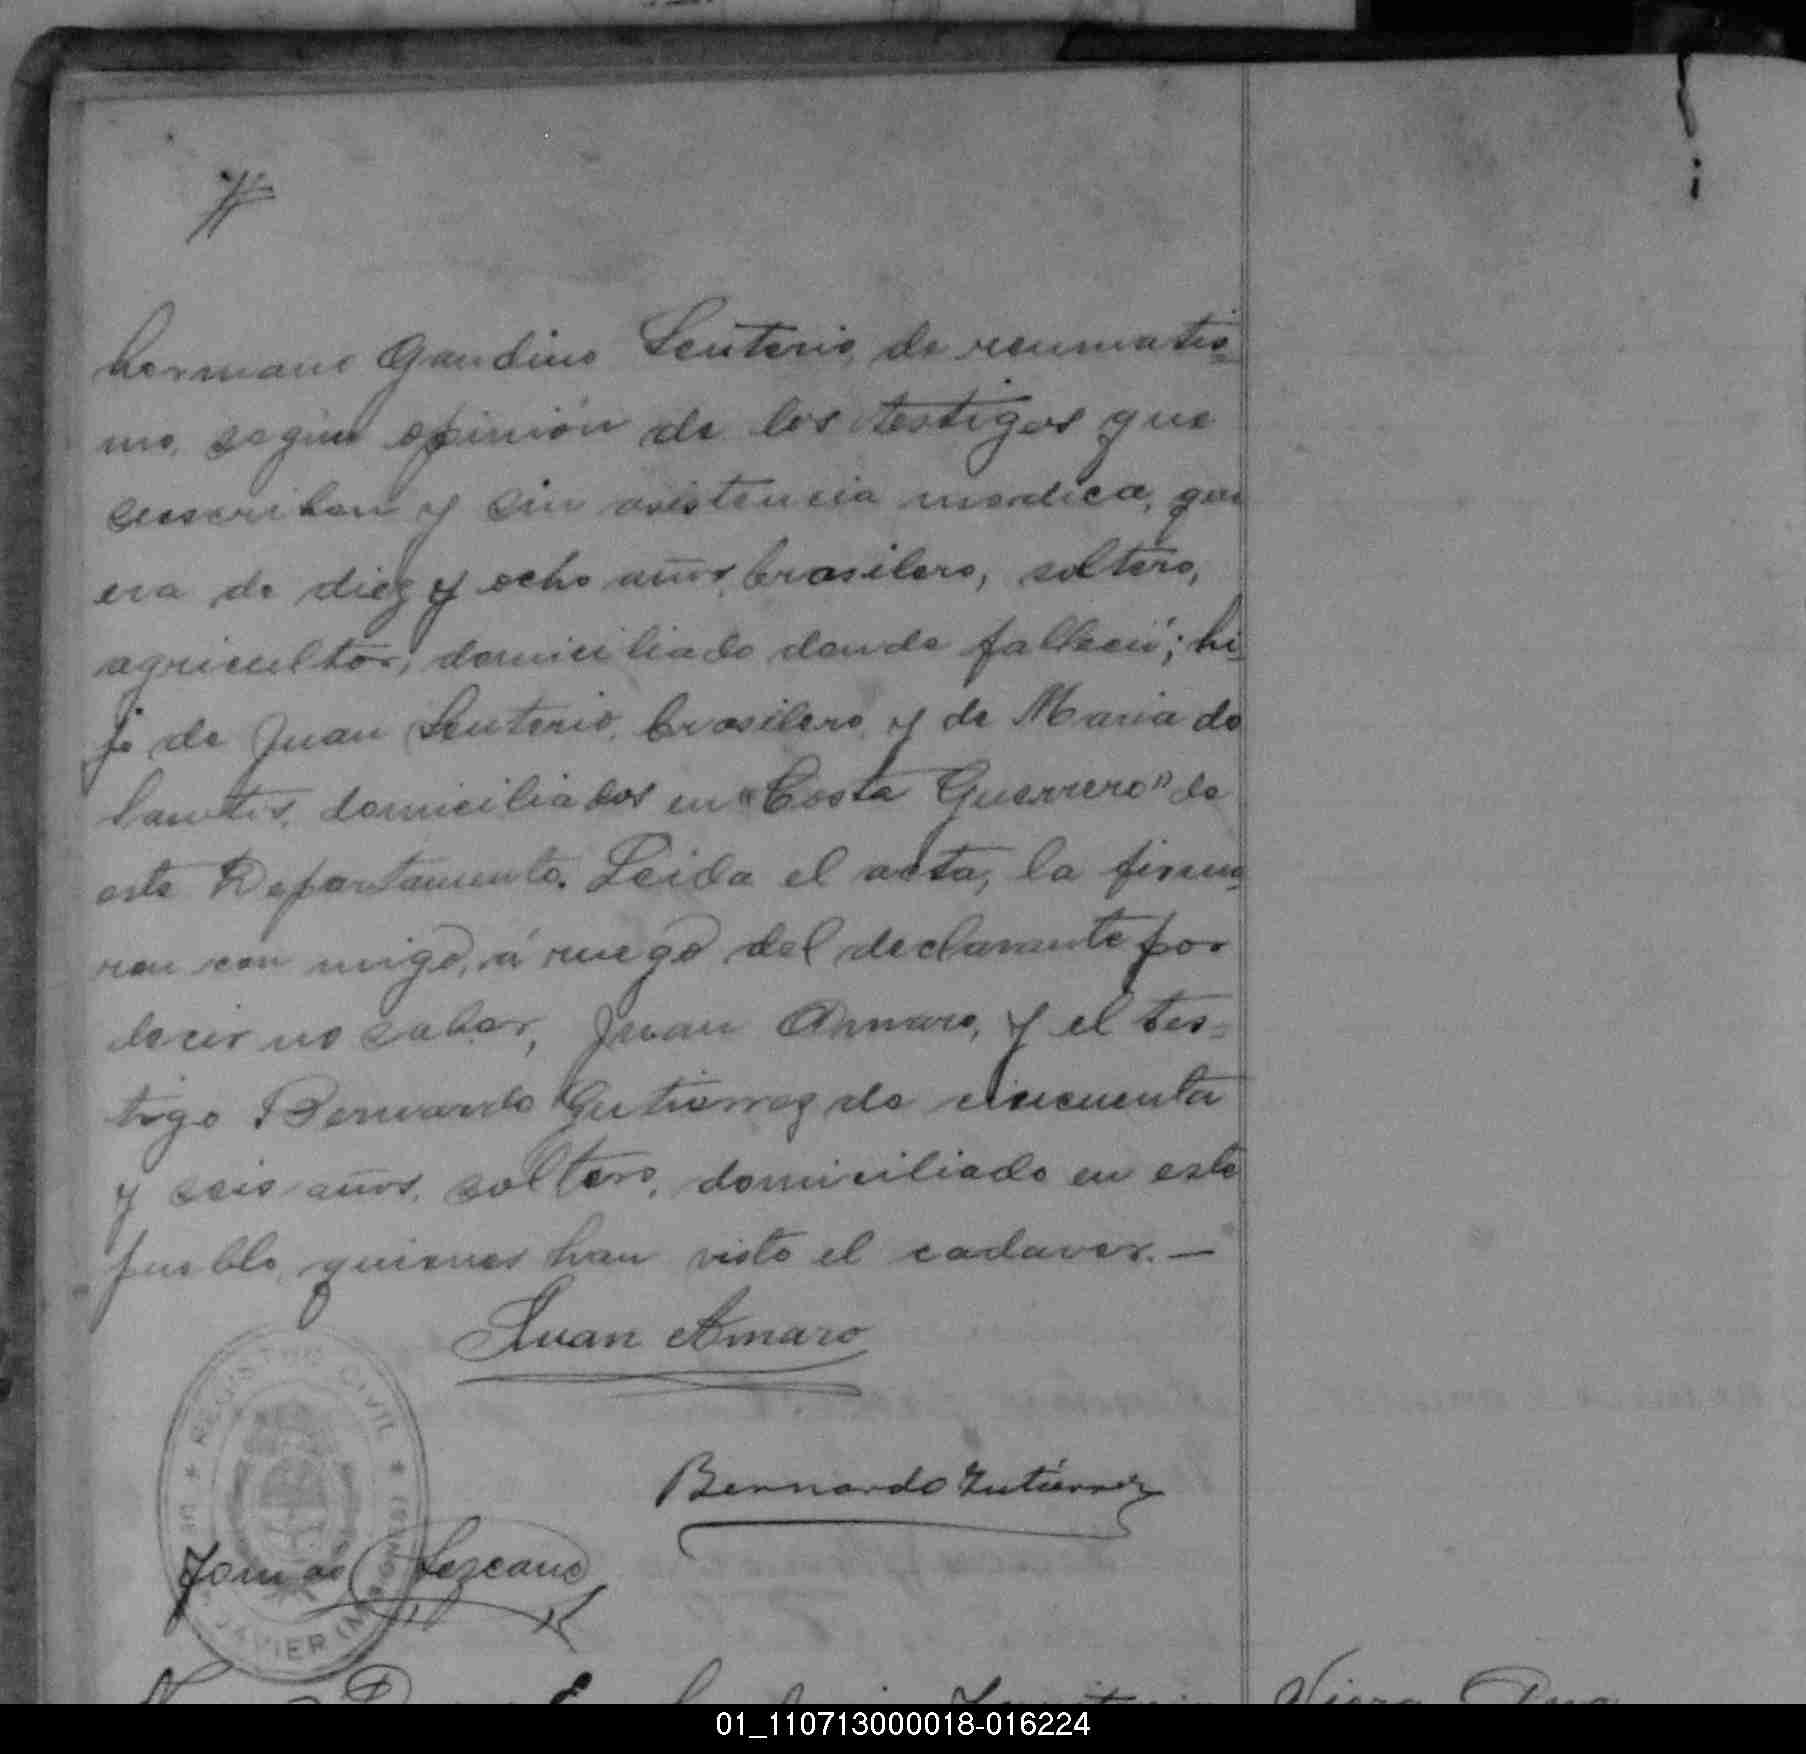 hermano Gaudino Leuterio, de reumatis=
mo, segun opinión de los testigos que
suscriben y sin asistencia medica, que
era de diez y ocho años, brasilero, soltero,
agricultor, domiciliado donde falleció; hi=
jo de Juan Leuterio, brasilero, y de Maria do
domiciliados en "Costa Guerrero" de
este Departamento. Leida el acta, la firma=
ron con migo, á ruego del declarante por
decir no saber, Juan Amaro, y el tes=
tigo Bernardo Gutierrez de cincuenta
y seis años, soltero, domiciliado en este
pueblo, quienes han visto el cadaver.—
Juan Amaro
Bernardo Gutiérrez
Tomas Lezcano
REGISTRO CIVIL
JAVIER (MISIONES)
01_110713000018-016224